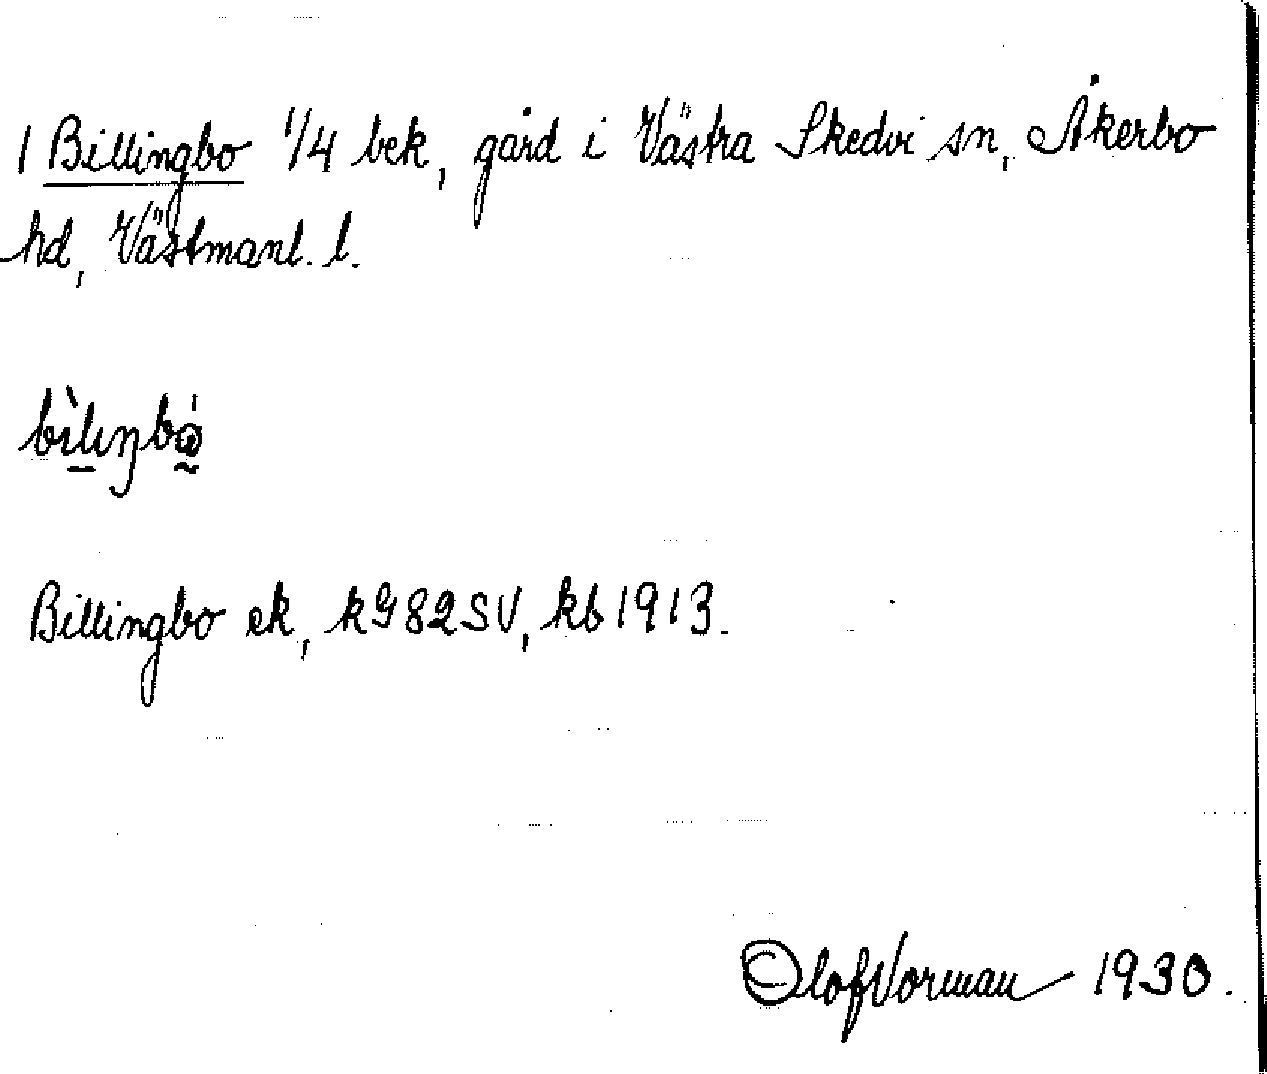 1 Billingbo 1/4 bek, gård i Västra Skedvi sn, Åkerbo
hd, Västmanl. l.
bìlıŋbo̰̍
Billingbo ek, kG82SV, kb 1913.
Olof Norman 1930.